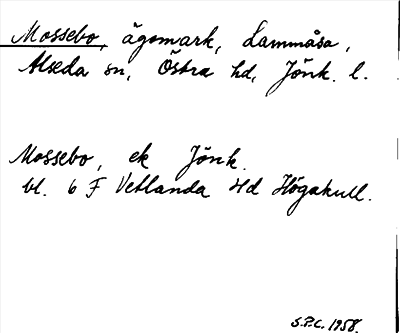 Mossebo, ägomark, Lammåsa,
Alseda sn, Östra hd, Jönk. l.
Mossebo, ek Jönk.
bl. 6 F Vetlanda 4d Högakull.
S.P.C. 1958.